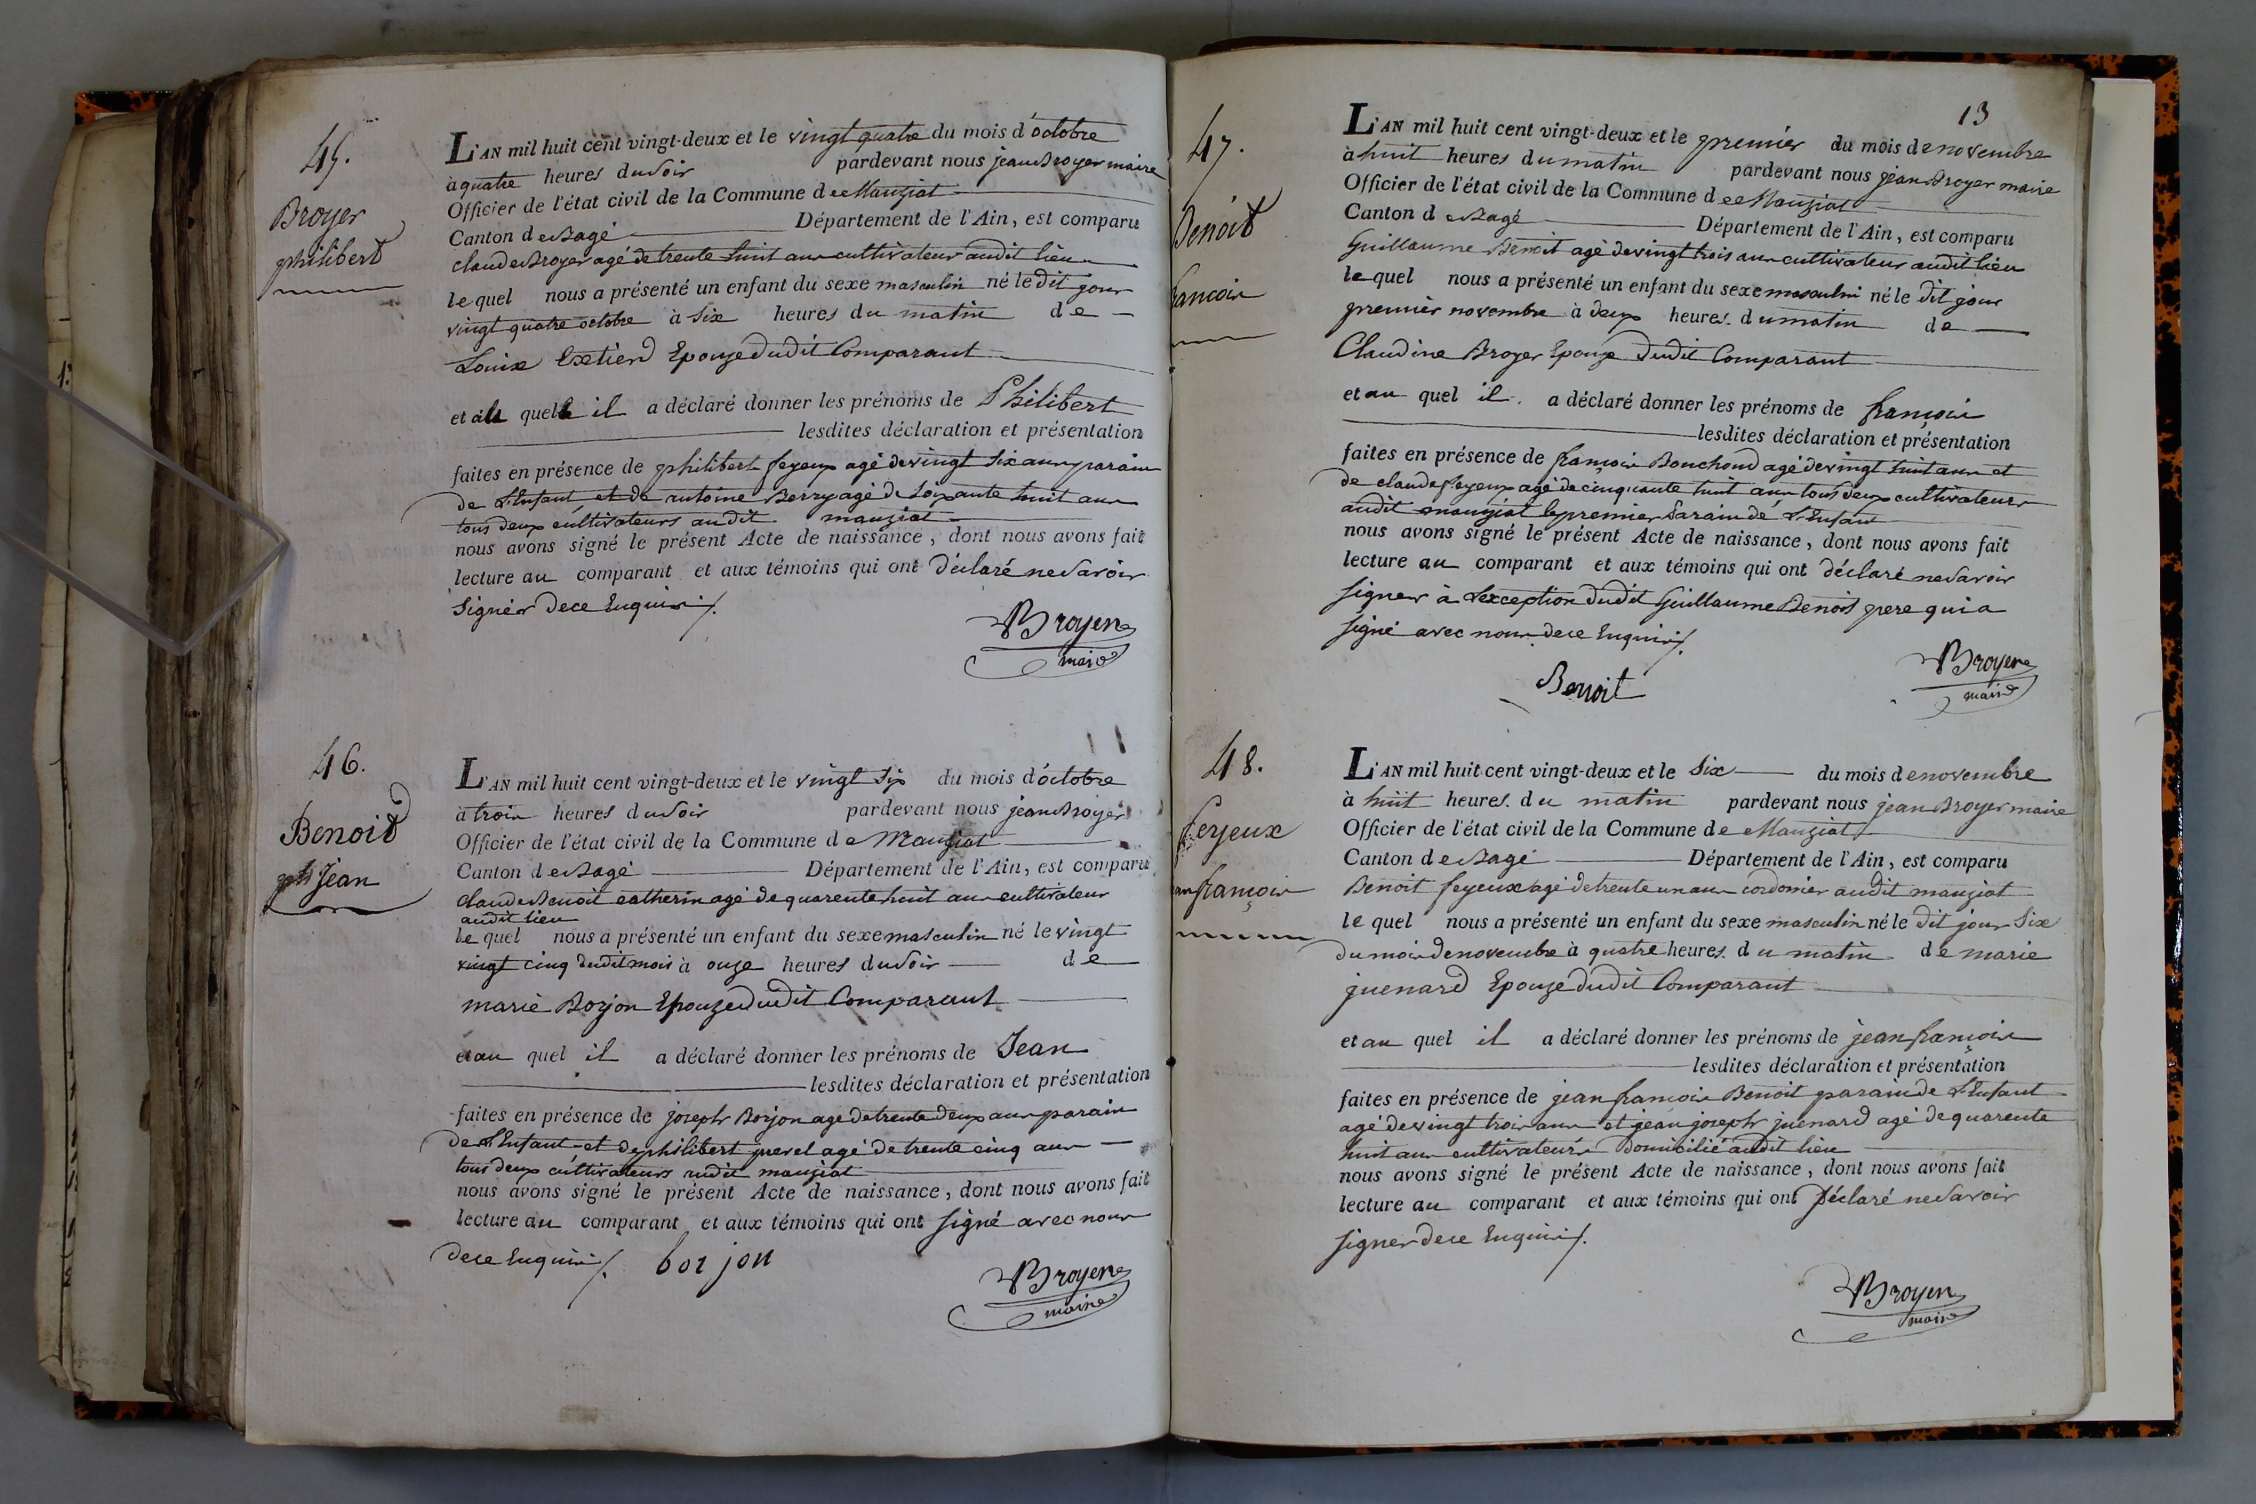 45.
Broyer
philibert
L'AN mil huit cent vingt-deux et le vingt quatre du mois d'octobre
à quatre heures du soir pardevant nous jean Broyer maire
Officier de l'état civil de la Commune de Manziat
Canton de Bagé Département de l'Ain, est comparu
claude Broyer agé de trente huit ans cultivateur audit lieu
lequel nous a présenté un enfant du sexe masculin né le dit jour
vingt quatre octobre à six heures du matin de
Louise Exetierd Epouze dudit Comparant
et au quel il a déclaré donner les prénoms de Philibert
lesdites déclaration et présentation
faites en présence de philibert feyeux agé de vingt six ans parain
de L'Enfant et de antoine Berry agé de soixante huit ans
tous deux cultivateurs audit manziat
nous avons signé le présent Acte de naissance, dont nous avons fait
lecture au comparant et aux témoins qui ont déclaré ne savoir
signer de ce Enquis ./.
Broyer
maire
46.
Benoit
Jean
L'AN mil huit cent vingt-deux et le vingt six du mois d'octobre
à trois heures du soir pardevant nous jean Broyer
Officier de l'état civil de la Commune de Manziat
Canton de Bagé Département de l'Ain, est comparu
claude Benoit catherin agé de quarente huit ans cultivateur
audit lieu
lequel nous a présenté un enfant du sexe masculin né le vingt
vingt cinq dudit mois à onze heures du soir de
marie Borjon Epouze dudit Comparant
et au quel il a déclaré donner les prénoms de Jean
lesdites déclaration et présentation
faites en présence de joseph Borjon age de trente deux ans parain
de L'Enfant et de philibert agé de trente cinq ans
tous deux cultivateurs audit manziat
nous avons signé le présent Acte de naissance, dont nous avons fait
lecture au comparant et aux témoins qui ont signé avec nous
de ce Enquis ./. borjon
Broyer
maire
13
47.
Benoit
francois
L'AN mil huit cent vingt-deux et le premier du mois de novembre
à huit heures du matin pardevant nous jean Broyer maire
Officier de l'état civil de la Commune de Manziat
Canton de Bagé Département de l'Ain, est comparu
Guillaume Benoit agé de vingt trois ans cultivateur audit lieu
lequel nous a présenté un enfant du sexe masculin né le dit jour
premier novembre à deux heures du matin de
Claudine Broyer Epouze dudit Comparant
et au quel il a déclaré donner les prénoms de françois
lesdites déclaration et présentation
faites en présence de françois Bouchoud agé de vingt huit ans et
de claude feyeux agé de cinquante huit ans tous deux cultivateurs
audit manziat le premier Parain de L'Enfant
nous avons signé le présent Acte de naissance, dont nous avons fait
lecture au comparant et aux témoins qui ont déclaré ne savoir
signer à L'exception dudit Guillaume Benoit pere qui a
signé avec nous de ce Enquis ./.
Benoit
Broyer
maire
48.
feyeux
jean françois
L'AN mil huit cent vingt-deux et le six du mois de novembre
à huit heures du matin pardevant nous jean Broyer maire
Officier de l'état civil de la Commune de Manziat
Canton de Bagé Département de l'Ain, est comparu
Benoit feyeux agé de trente un ans cordonier audit manziat
lequel nous a présenté un enfant du sexe masculin né le dit jour six
du mois de novembre à quatre heures du matin de marie
juenard Epouze dudit Comparant
et au quel il a déclaré donner les prénoms de jean françois
lesdites déclaration et présentation
faites en présence de jean françois Benoit parain de L'Enfant
agé de vingt trois ans et jean joseph juenard agé de quarente
huit ans cultivateurs domicilié audit lieu
nous avons signé le présent Acte de naissance, dont nous avons fait
lecture au comparant et aux témoins qui ont déclaré ne savoir
signer de ce Enquis ./.
Broyer
maire